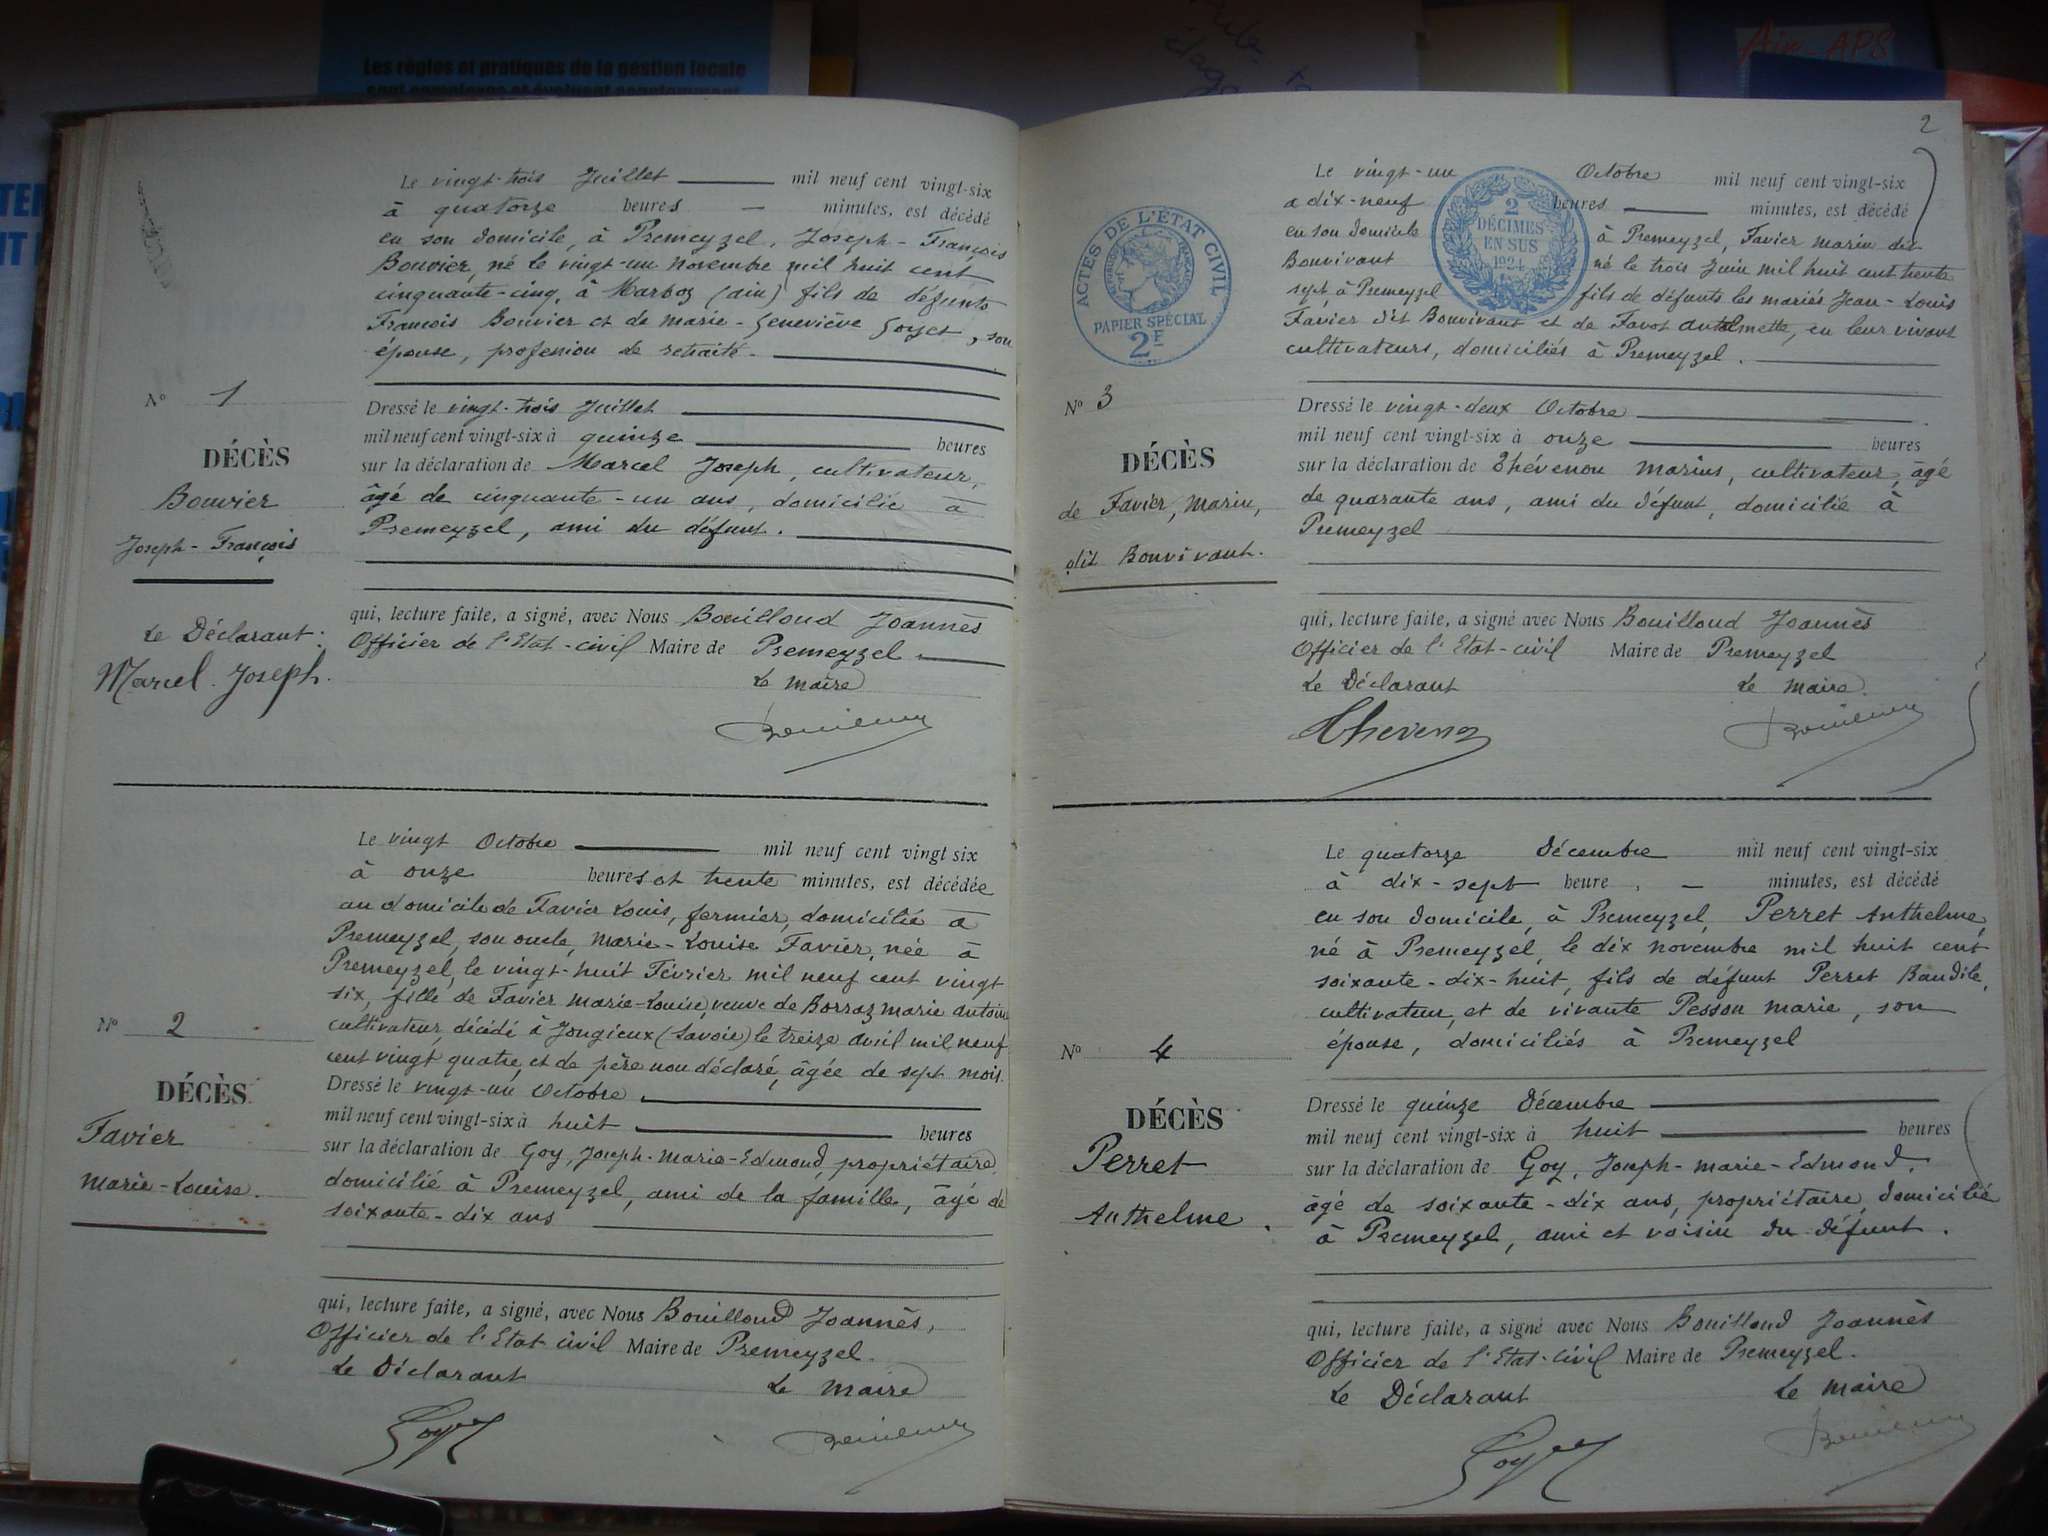 Les règles et pratiques de la gestion locale
sont complexes et évoluent constamment
Ain - APS
Le vingt-trois Juillet mil neuf cent vingt-six
à quatorze heures — minutes, est décédé
en son domicile, à Premeyzel, Joseph-François
Bouvier, né le vingt-un Novembre mil huit cent
cinquante-cinq, à Marboz (ain) fils de défunts
François Bouvier et de marie-Geneviève Goyet, son
épouse, profession de retraité.
N° 1
DÉCÈS
Bouvier
Joseph-François
Dressé le vingt-trois Juillet
mil neuf cent vingt-six à quinze heures
sur la déclaration de Marcel Joseph, cultivateur,
âgé de cinquante-un ans, domicilié à
Premeyzel, ami du défunt.
qui, lecture faite, a signé, avec Nous Bouilloud Joannès
Officier de l'Etat-civil Maire de Premeyzel.
Le Déclarant:
Marcel Joseph.
Le maire
Le vingt Octobre mil neuf cent vingt six
à onze heures et trente minutes, est décédée
au domicile de Favier Louis, fermier, domicilié à
Premeyzel, son oncle, Marie-Louise Favier, née à
Premeyzel, le vingt-huit Février mil neuf cent vingt
six, fille de Favier Marie-Louise, veuve de Borraz marie antoine
cultivateur, décédé à Jongieux (Savoie) le treize avril mil neuf
cent vingt quatre, et de père non déclaré, âgée de sept mois.
N° 2
DÉCÈS
Favier
Marie-Louise.
Dressé le vingt-un Octobre
mil neuf cent vingt-six à huit heures
sur la déclaration de Goy, Joseph-Marie-Edmond, propriétaire
domicilié à Premeyzel, ami de la famille, âgé de
soixante-dix ans
qui, lecture faite, a signé, avec Nous Bouilloud Joannès,
Officier de l'Etat civil Maire de Premeyzel.
Le Déclarant Le maire
Goy
2
Le vingt-un Octobre mil neuf cent vingt-six
a dix-neuf heures minutes, est décédé
en son domicile à Premeyzel, Favier Marin dit
Bonvivant né le trois Juin mil huit cent trente
sept, à Premeyzel fils de défunts les mariés Jean-Louis
Favier dit Bonvivant et de Favot antelmette, en leur vivant
cultivateurs, domiciliés à Premeyzel.
ACTES DE L'ÉTAT CIVIL
PAPIER SPÉCIAL
2F
2
DÉCIMES
EN SUS
1924
N° 3
DÉCÈS
de Favier, Marin,
dit Bonvivant.
Dressé le vingt-deux Octobre
mil neuf cent vingt-six à onze heures
sur la déclaration de Thévenon Marius, cultivateur, âgé
de quarante ans, ami du défunt, domicilié à
Premeyzel
qui, lecture faite, a signé avec Nous Bouilloud Joannès
Officier de l'Etat-civil Maire de Premeyzel
Le Déclarant Le maire.
Thevenon
Le quatorze Décembre mil neuf cent vingt-six
à dix-sept heure, — minutes, est décédé
en son domicile, à Premeyzel, Perret Anthelme,
né à Premeyzel, le dix novembre mil huit cent
soixante-dix-huit, fils de défunt Perret Baudile,
cultivateur, et de vivante Pesson Marie, son
épouse, domiciliés à Premeyzel
N° 4
DÉCÈS
Perret
Anthelme.
Dressé le quinze Décembre
mil neuf cent vingt-six à huit heures
sur la déclaration de Goy, Joseph-marie-Edmond,
âgé de soixante-dix ans, propriétaire, domicilié
à Premeyzel, ami et voisin du défunt.
qui, lecture faite, a signé avec Nous Bouilloud Joannès
Officier de l'Etat-civil Maire de Premeyzel.
Le Déclarant Le maire
Goy